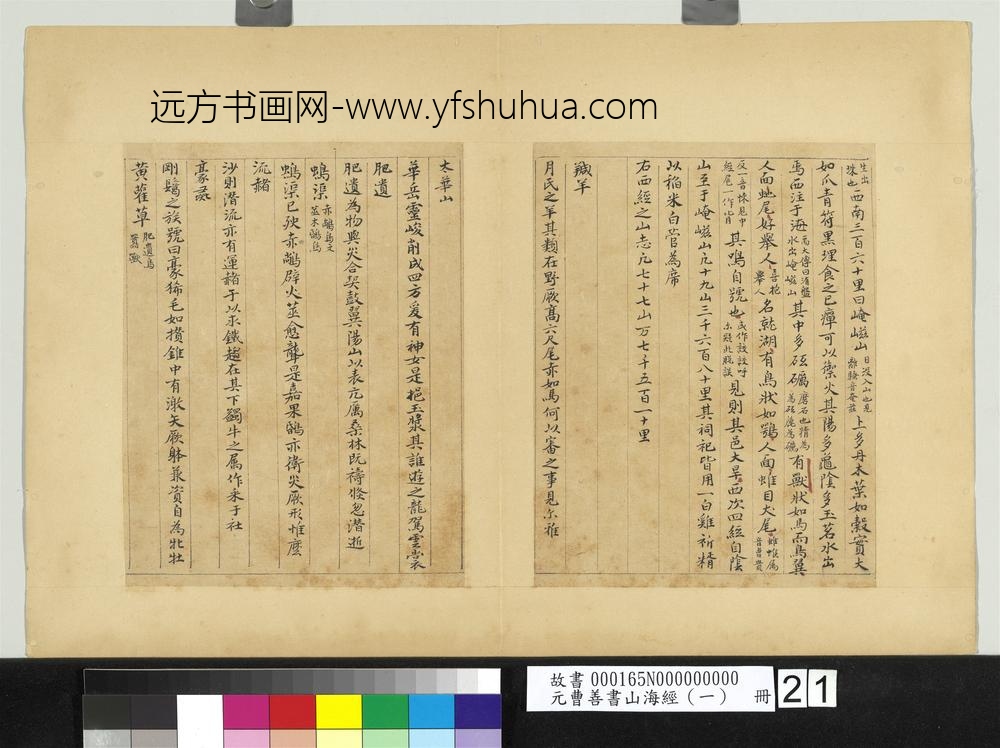 远方书画网-www.yfshuhua.com
生出
珠也 西南三百六十里曰崦嵫山 日没入山也見離騷音奄茲 上多丹木葉如穀實大
如爪青符黑理食之已癉可以禦火其陽多龜陰多玉苕水出
焉西注于海 禹大傳曰洧盤水出崦嵫山 其中多砥礪 磨石也精為砥麄為礪 有獸狀如馬而鳥翼
人面虵尾好舉人 喜抱舉人 名孰湖有鳥狀如鴞人面蜼目犬尾
其鳴自號也 見則其邑大旱西次四經自陰
山至于崦嵫山凡十九山三千六百八十里其祠祀皆用一白雞祈精
以稲米白菅為席
右西經之山志凡七十七山万七千五百一十里
羬羊
月氏之羊其類在野厥高六尺尾亦如馬何以審之事見尓雅
太華山
華岳靈峻削成四方爰有神女是挹玉漿其誰遊之龍駕雲裳
肥遺
肥遺為物與災合契鼓翼陽山以表亢厲桑林既禱倐忽潛逝
鴖渠 赤鷩鳥文莖木鴖鳥
鴖渠已殃赤鷩辟火莖愈聾是嘉果鴖亦衛災厥形惟麽
流赭
沙則潛流亦有運赭于以求鐵趍在其下蠲牛之厲作采于社
豪彘
剛鬣之族號曰豪狶毛如攢錐中有激矢厥躰兼資自為牝牡
黄雚草 肥遺鳥